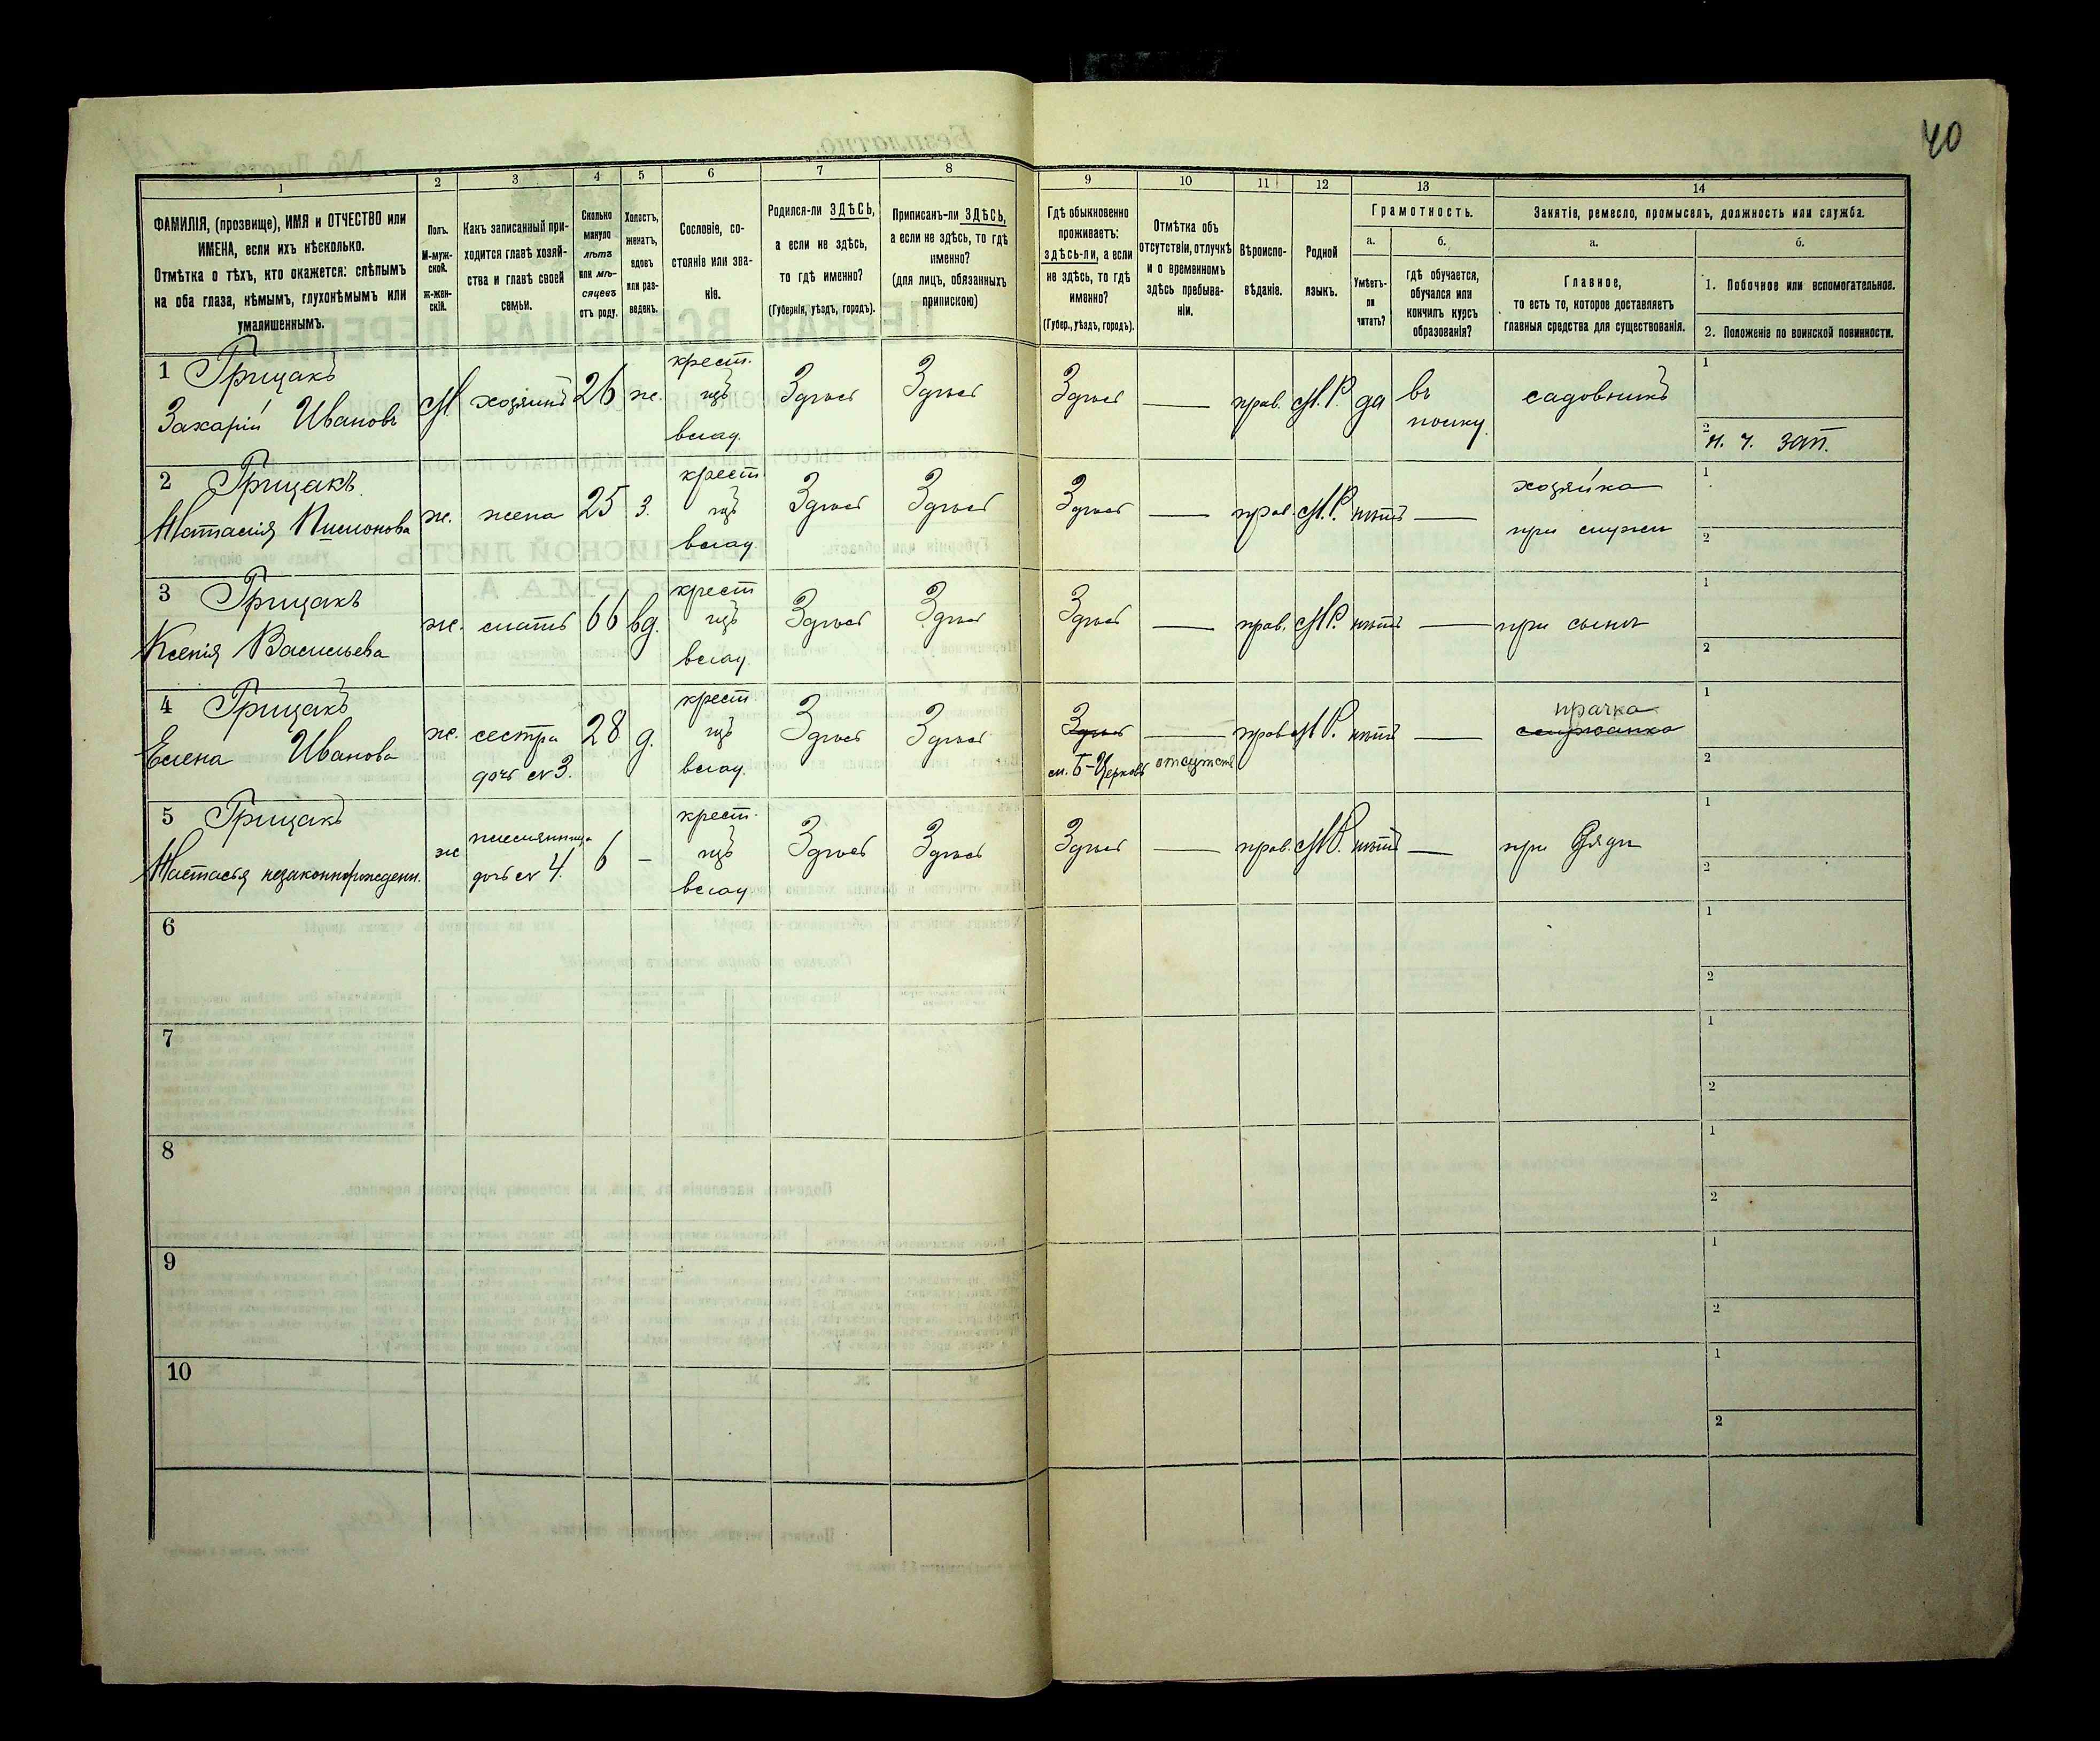 40
1
2
3
4
5
6
7
8
9
10
11
12
13
14
ФАМИЛІЯ, (прозвище), ИМЯ и ОТЧЕСТВО или
ИМЕНА, если ихъ нѣсколько.
Отмѣтка о тѣхъ, кто окажется: слѣпымъ
на оба глаза, нѣмымъ, глухонѣмымъ или
умалишеннымъ.
Полъ.
М-муж-
ской.
Ж-жен-
скій.
Какъ записанный при-
ходится главѣ хозяй-
ства и главѣ своей
семьи.
Сколько
минуло
лѣтъ
или мѣ-
сяцевъ
отъ роду.
Холостъ,
женатъ,
вдовъ
или раз-
веденъ.
Сословіе, со-
стояніе или зва-
ніе.
Родился-ли ЗДѢСЬ,
а если не здѣсь,
то гдѣ именно?
(Губернія, уѣздъ, городъ).
Приписанъ-ли ЗДѢСЬ,
а если не здѣсь, то гдѣ
именно?
(для лицъ, обязанныхъ
припискою)
Гдѣ обыкновенно
проживаетъ:
здѣсь-ли, а если
не здѣсь, то гдѣ
именно?
(Губер., уѣздъ, городъ).
Отмѣтка объ
отсутствіи, отлучкѣ
и о временномъ
здѣсь пребыва-
ніи.
Вѣроиспо-
вѣданіе.
Родной
языкъ.
Грамотность.
а.
Умѣетъ-
ли
читать?
б.
гдѣ обучается,
обучался или
кончилъ курсъ
образованія?
Занятіе, ремесло, промыселъ, должность или служба.
а.
Главное,
то есть то, которое доставляетъ
главныя средства для существованія.
б.
1. Побочное или вспомогательное.
2. Положеніе по воинской повинности.
1 Грицакъ
Захарій Ивановъ
М хозяинъ 26 ж.
крест.
изъ
влад.
Здѣсь Здѣсь Здѣсь — прав. М.Р. да
въ
полку.
садовникъ
1
2 н. ч. зап.
2 Грицакъ
Настасія Пилионова
ж. жена 25 з.
крест.
изъ
влад.
Здѣсь Здѣсь Здѣсь — прав. М.Р. нѣтъ —
хозяйка
при мужѣ
1
2
3 Грицакъ
Ксенія Васильева
ж. мать 66 вд.
крест
изъ
влад.
Здѣсь Здѣсь Здѣсь — прав. М.Р. нѣтъ — при сынѣ
1
2
4 Грицакъ
Елена Иванова
ж. сестра
дочь № 3.
28 д.
крест
изъ
влад.
Здѣсь Здѣсь Здѣсь
м. Б-Церковь
—
отсутств
прав М.Р. нѣтъ —
прачка
служанка
1
2
5 Грицакъ
Настасья незаконнорожденн.
ж
племянница
дочь № 4.
6 —
крест.
изъ
влад
Здѣсь Здѣсь Здѣсь — прав. М.Р. нѣтъ — при дядѣ
1
2
6
1
2
7
1
2
8
1
2
9
1
2
10
1
2